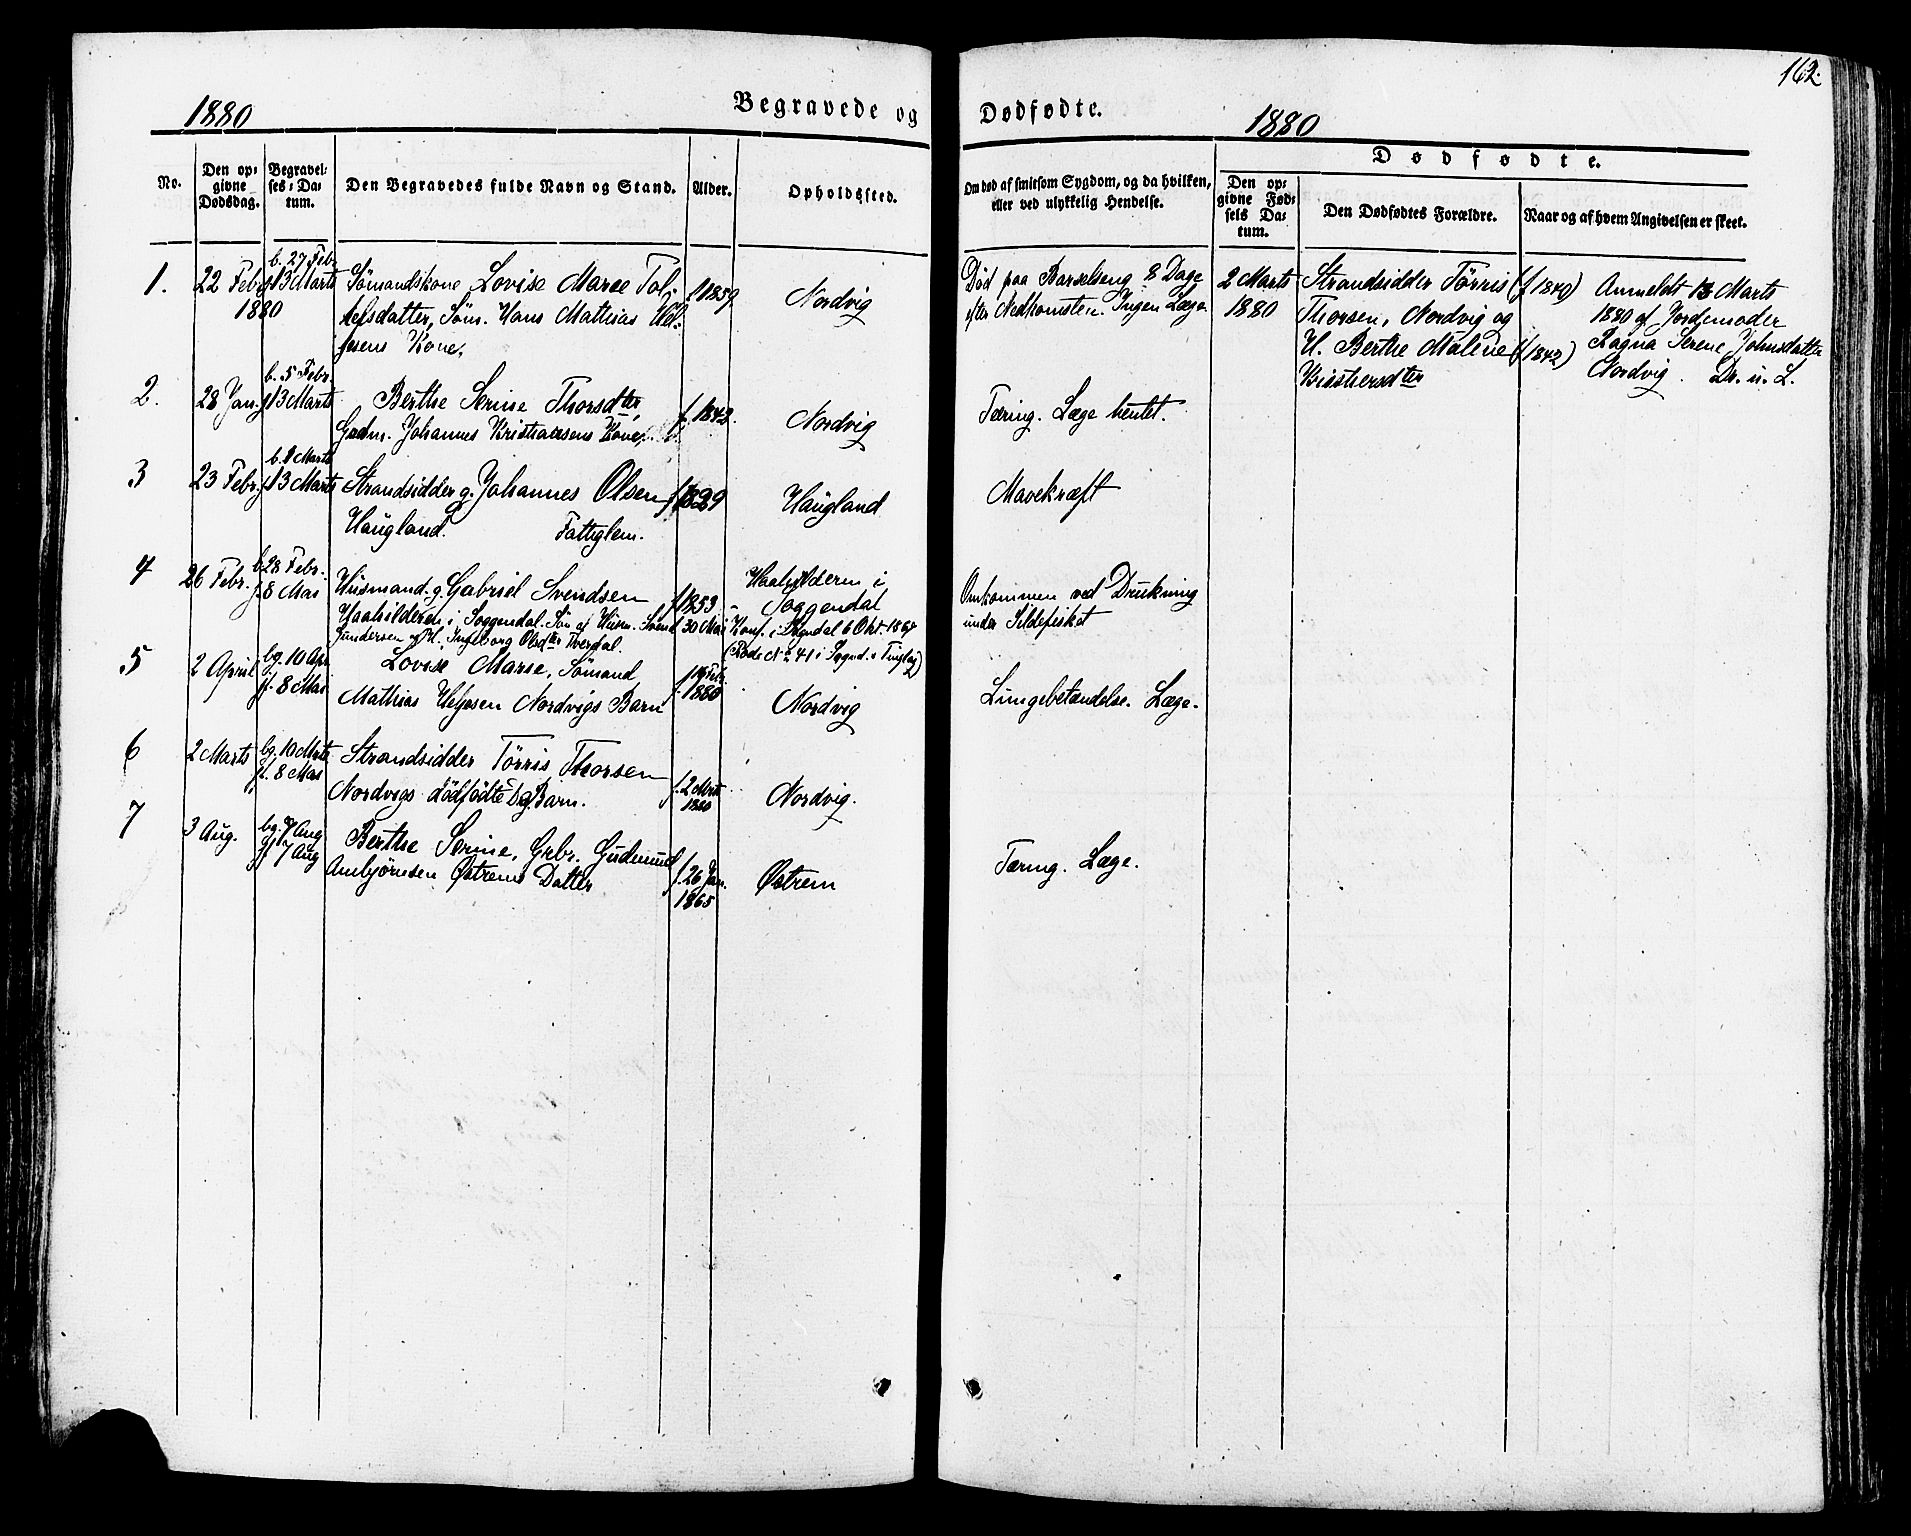 162.
1880
Begravede og Dødfødte.
1880
No.
Den opgivne Dødsdag.
Begravelses-Datum.
Den Begravedes fulde Navn og Stand.
Alder.
Opholdssted.
Om død af smitsom Sygdom, og da hvilken,
eller ved ulykkelig Hendelse.
Dødfødte.
Den opgivne Fødsels Datum.
Den Dødfødtes Forældre.
Naar og af hvem Angivelsen er skeet.
1.
22 Febr
1880
b. 27 Feb.
f. 13 Marts
Sømandskone Lovise Marie Tol-
lefsdatter, Søm. Hans Mathias Hel-
jesens Kone,
f 1859
Nordvig
Død paa Barselseng 8 Dage
efter Nedkomsten. Ingen Læge.
2 Marts
1880
Strandsidder Tørris (f 1840)
Thorsen, Nordvig og
H. Berthe Malene (f 1842)
Anmeldt 13 Marts
1880 af Jordemoder
Ragna Serene Johnsdatter
Nordvig. Dr. u. L.
2.
28 Jan.
b. 5 Febr.
f. 13 Marts
Berthe Serine Thorsdter
Gadm. Johannes Kristiansens Kone,
f. 1842.
Nordvig
Tæring. Læge hentet.
3
23 Febr.
b. 2 Marts
f. 13 Marts
Strandsidder g. Johannes Olsen
Haugland. Fattiglem.
f 1829
Haugland
Mavekræft
4
26 Febr.
b. 28 Febr.
f. 8 Mai
Husmand. g. Gabriel Svendsen
Haahilderen i Soggendal. Søn af Husm. Svend
Gundersen og H. Ingeborg Olsdter Tverdal.
f 1853
30 Mai
Haahilderen i
Soggendal
Konf. i Sogndal 6 Okt. 1867
(Rode No 41 i Sognd. Tinglag)
Omkommen ved Drukning
under Sildefisket
5
2 April
bg. 10 Apr
f. 8 Mai
Lovise Marie, Sømand
Mathias Heljesen Nordvigs Barn
Febr.
f. 1880
Nordvig
Lungebetændelse. Læge.
6
2 Marts
bg. 10 Mrts
f. 8 Mai
Strandsidder Tørris Thorsen
Nordvigs dødfødte Dg. Barn.
f. 2 Mrts
1880
Nordvig.
7
3 Aug.
bg. 7 Aug
f 7 Aug
Berthe Serine, Grbr. Gudmund
Ambjørnsen Østrems Datter
f. 26 Jan.
1865
Østrem
Tæring. Læge.